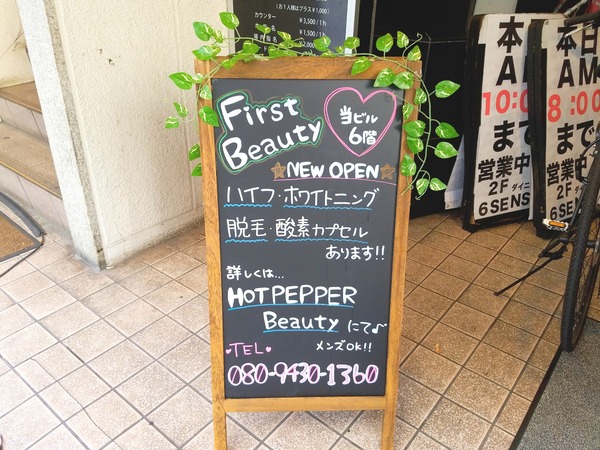 (お1人様はプラス¥1,000)
カウンター ¥3,500/1h
¥1,500/1h
First
Beauty
当ビル
6階
NEW OPEN
ハイフ・ホワイトニング
脱毛・酸素カプセル
あります!!
詳しくは…
HOTPEPPER
Beauty にて♪
メンズOK!!
♥TEL♥
080-9430-1360
本
A
10:0
まで
営業中
2F ダイニ
6SENS
本日
AM
8:00
まで
営業中
2F ダイ
6SENS